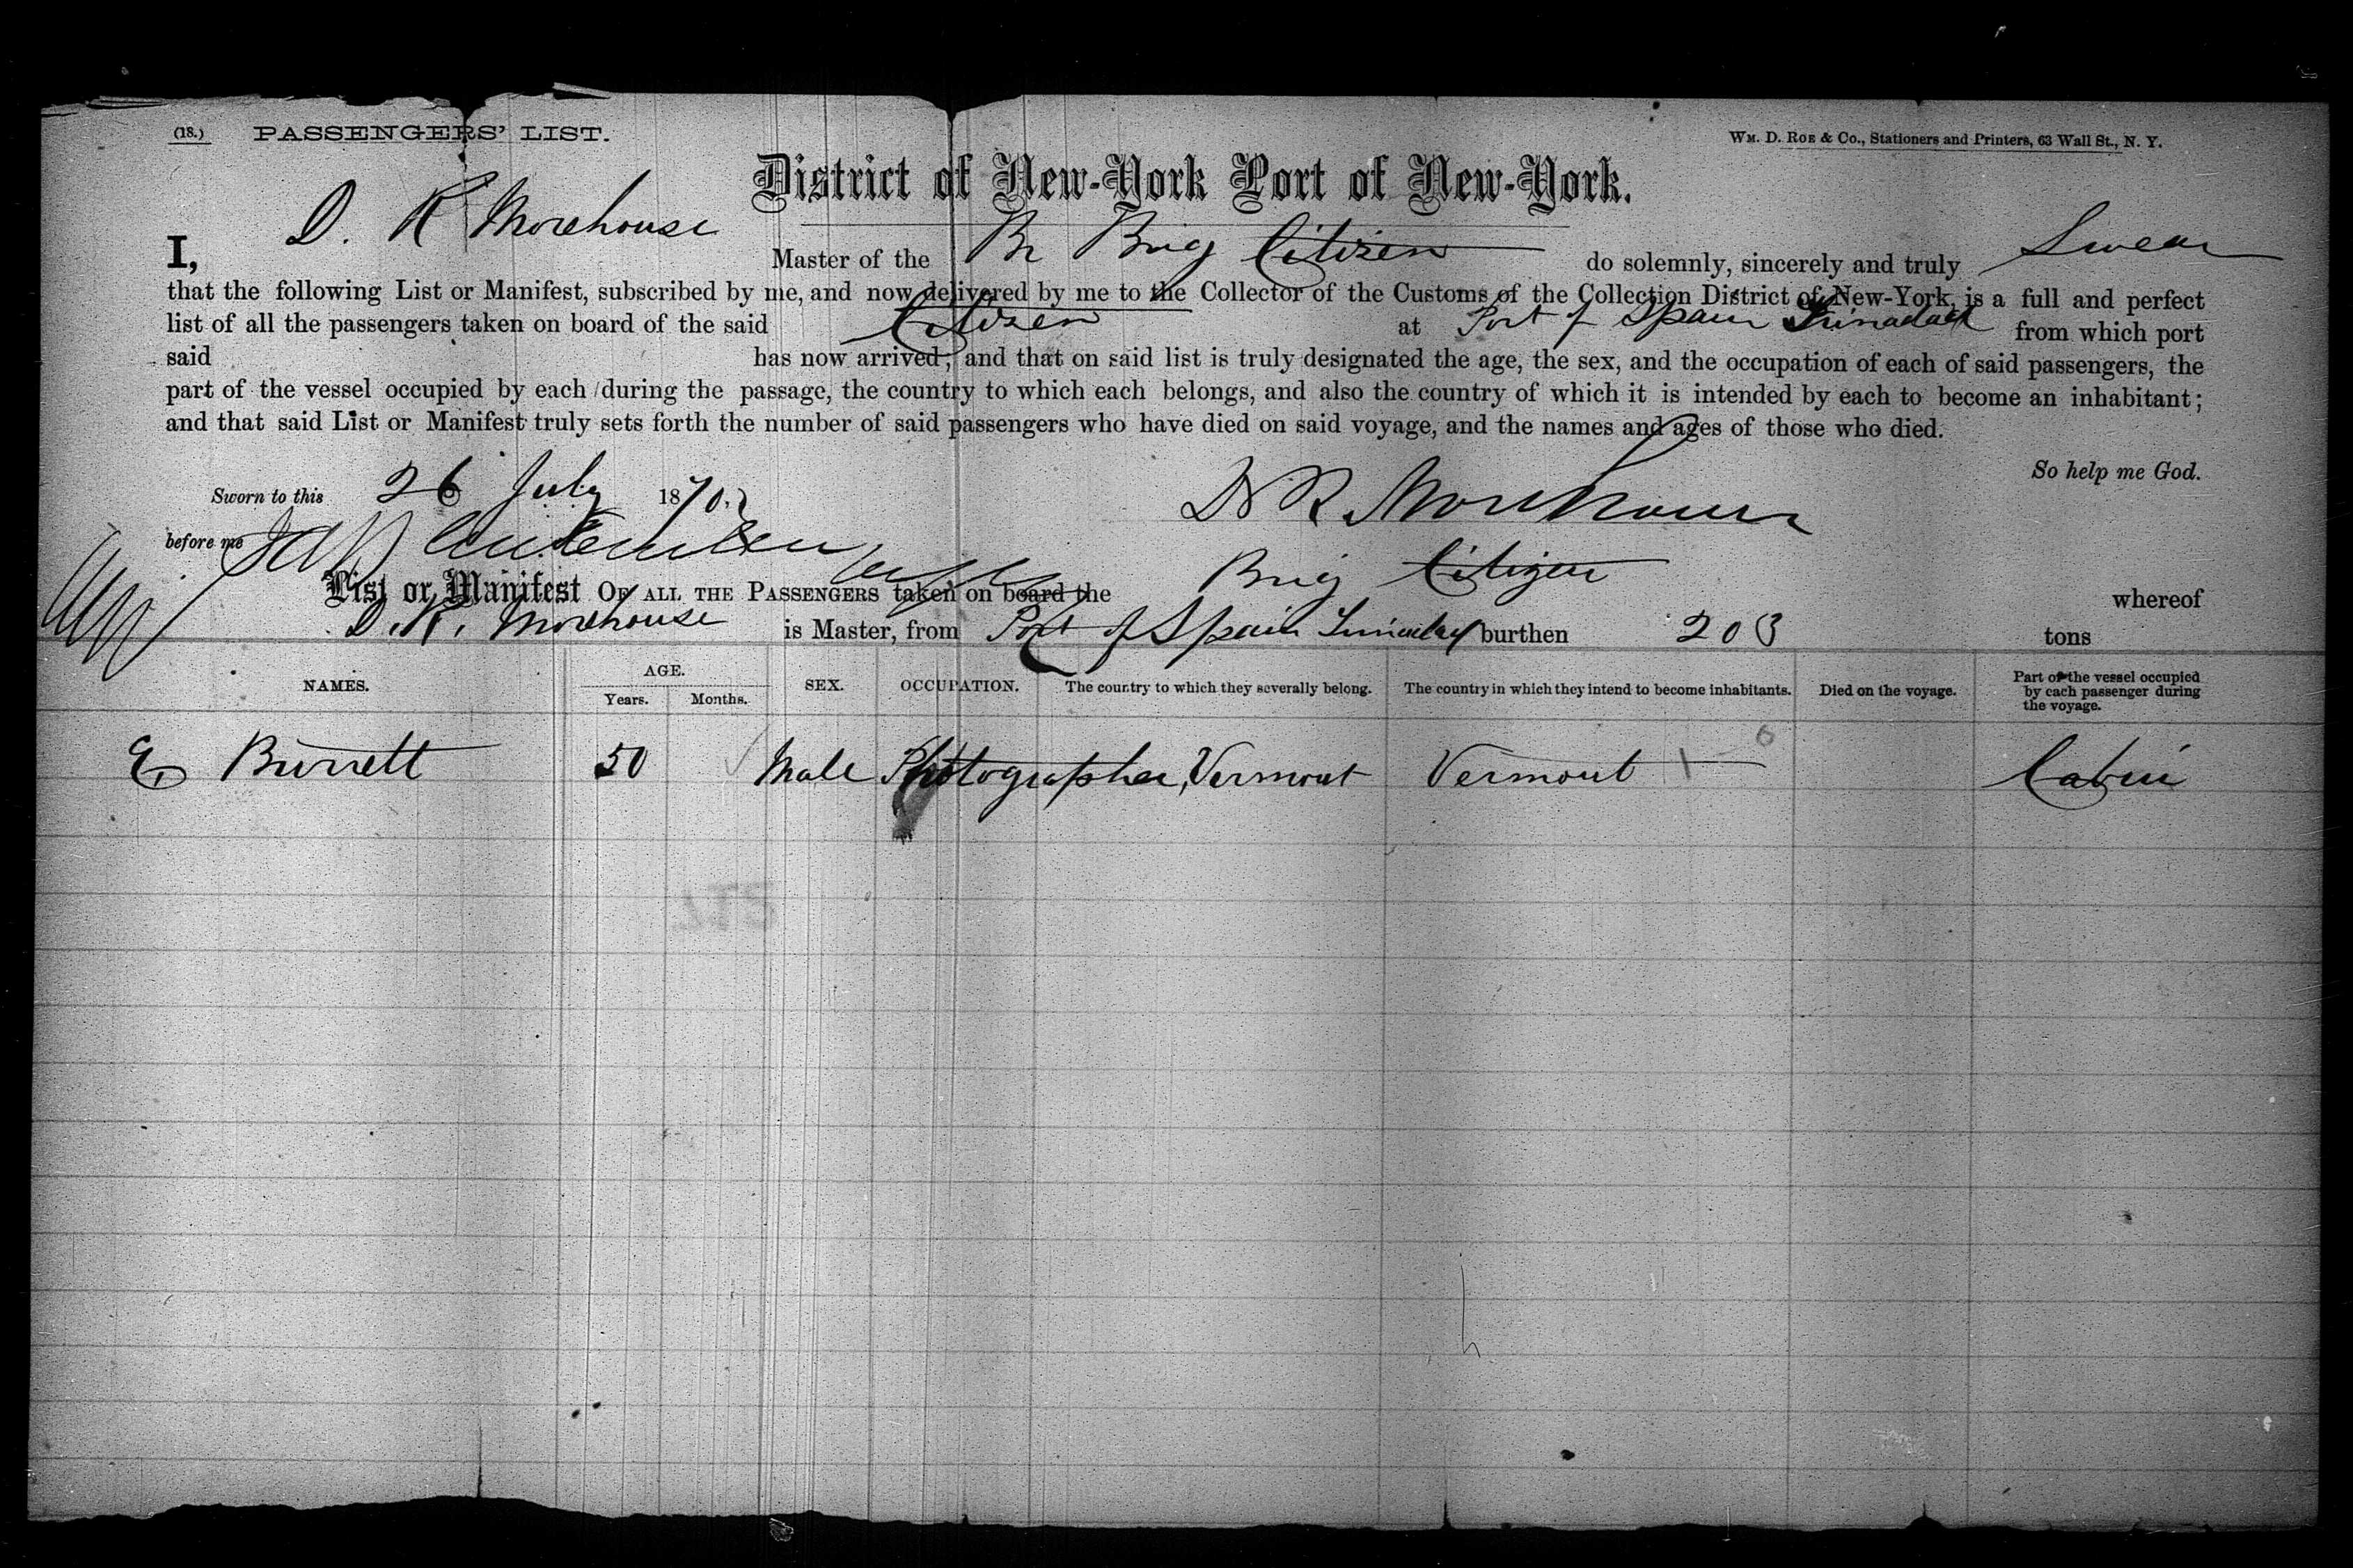 (18.) PASSENGERS' LIST.
WM. D. ROE & CO., Stationers and Printers, 63 Wall St., N. Y.
District of New-York Port of New-York.
I, D. R Morehouse Master of the Br Brig Citizen do solemnly, sincerely and truly Swear
that the following List or Manifest, subscribed by me, and now delivered by me to the Collector of the Customs of the Collection District of New-York, is a full and perfect
list of all the passengers taken on board of the said Citizen at Port of Spain Trinadad from which port
said has now arrived; and that on said list is truly designated the age, the sex, and the occupation of each of said passengers, the
part of the vessel occupied by each during the passage, the country to which each belongs, and also the country of which it is intended by each to become an inhabitant;
and that said List or Manifest truly sets forth the number of said passengers who have died on said voyage, and the names and ages of those who died.
So help me God.
Sworn to this 26 July 1870.
D R Morehouse
before me
List or Manifest OF ALL THE PASSENGERS taken on board the Brig Citizen whereof
D. R. Morehouse is Master, from Port of Spain Trinidad burthen 203 tons
NAMES. AGE. Years. Months. SEX. OCCUPATION. The country to which they severally belong. The country in which they intend to become inhabitants. Died on the voyage. Part of the vessel occupied by each passenger during the voyage.
E Burrett 50 Male Photographer, Vermont Vermont Cabin